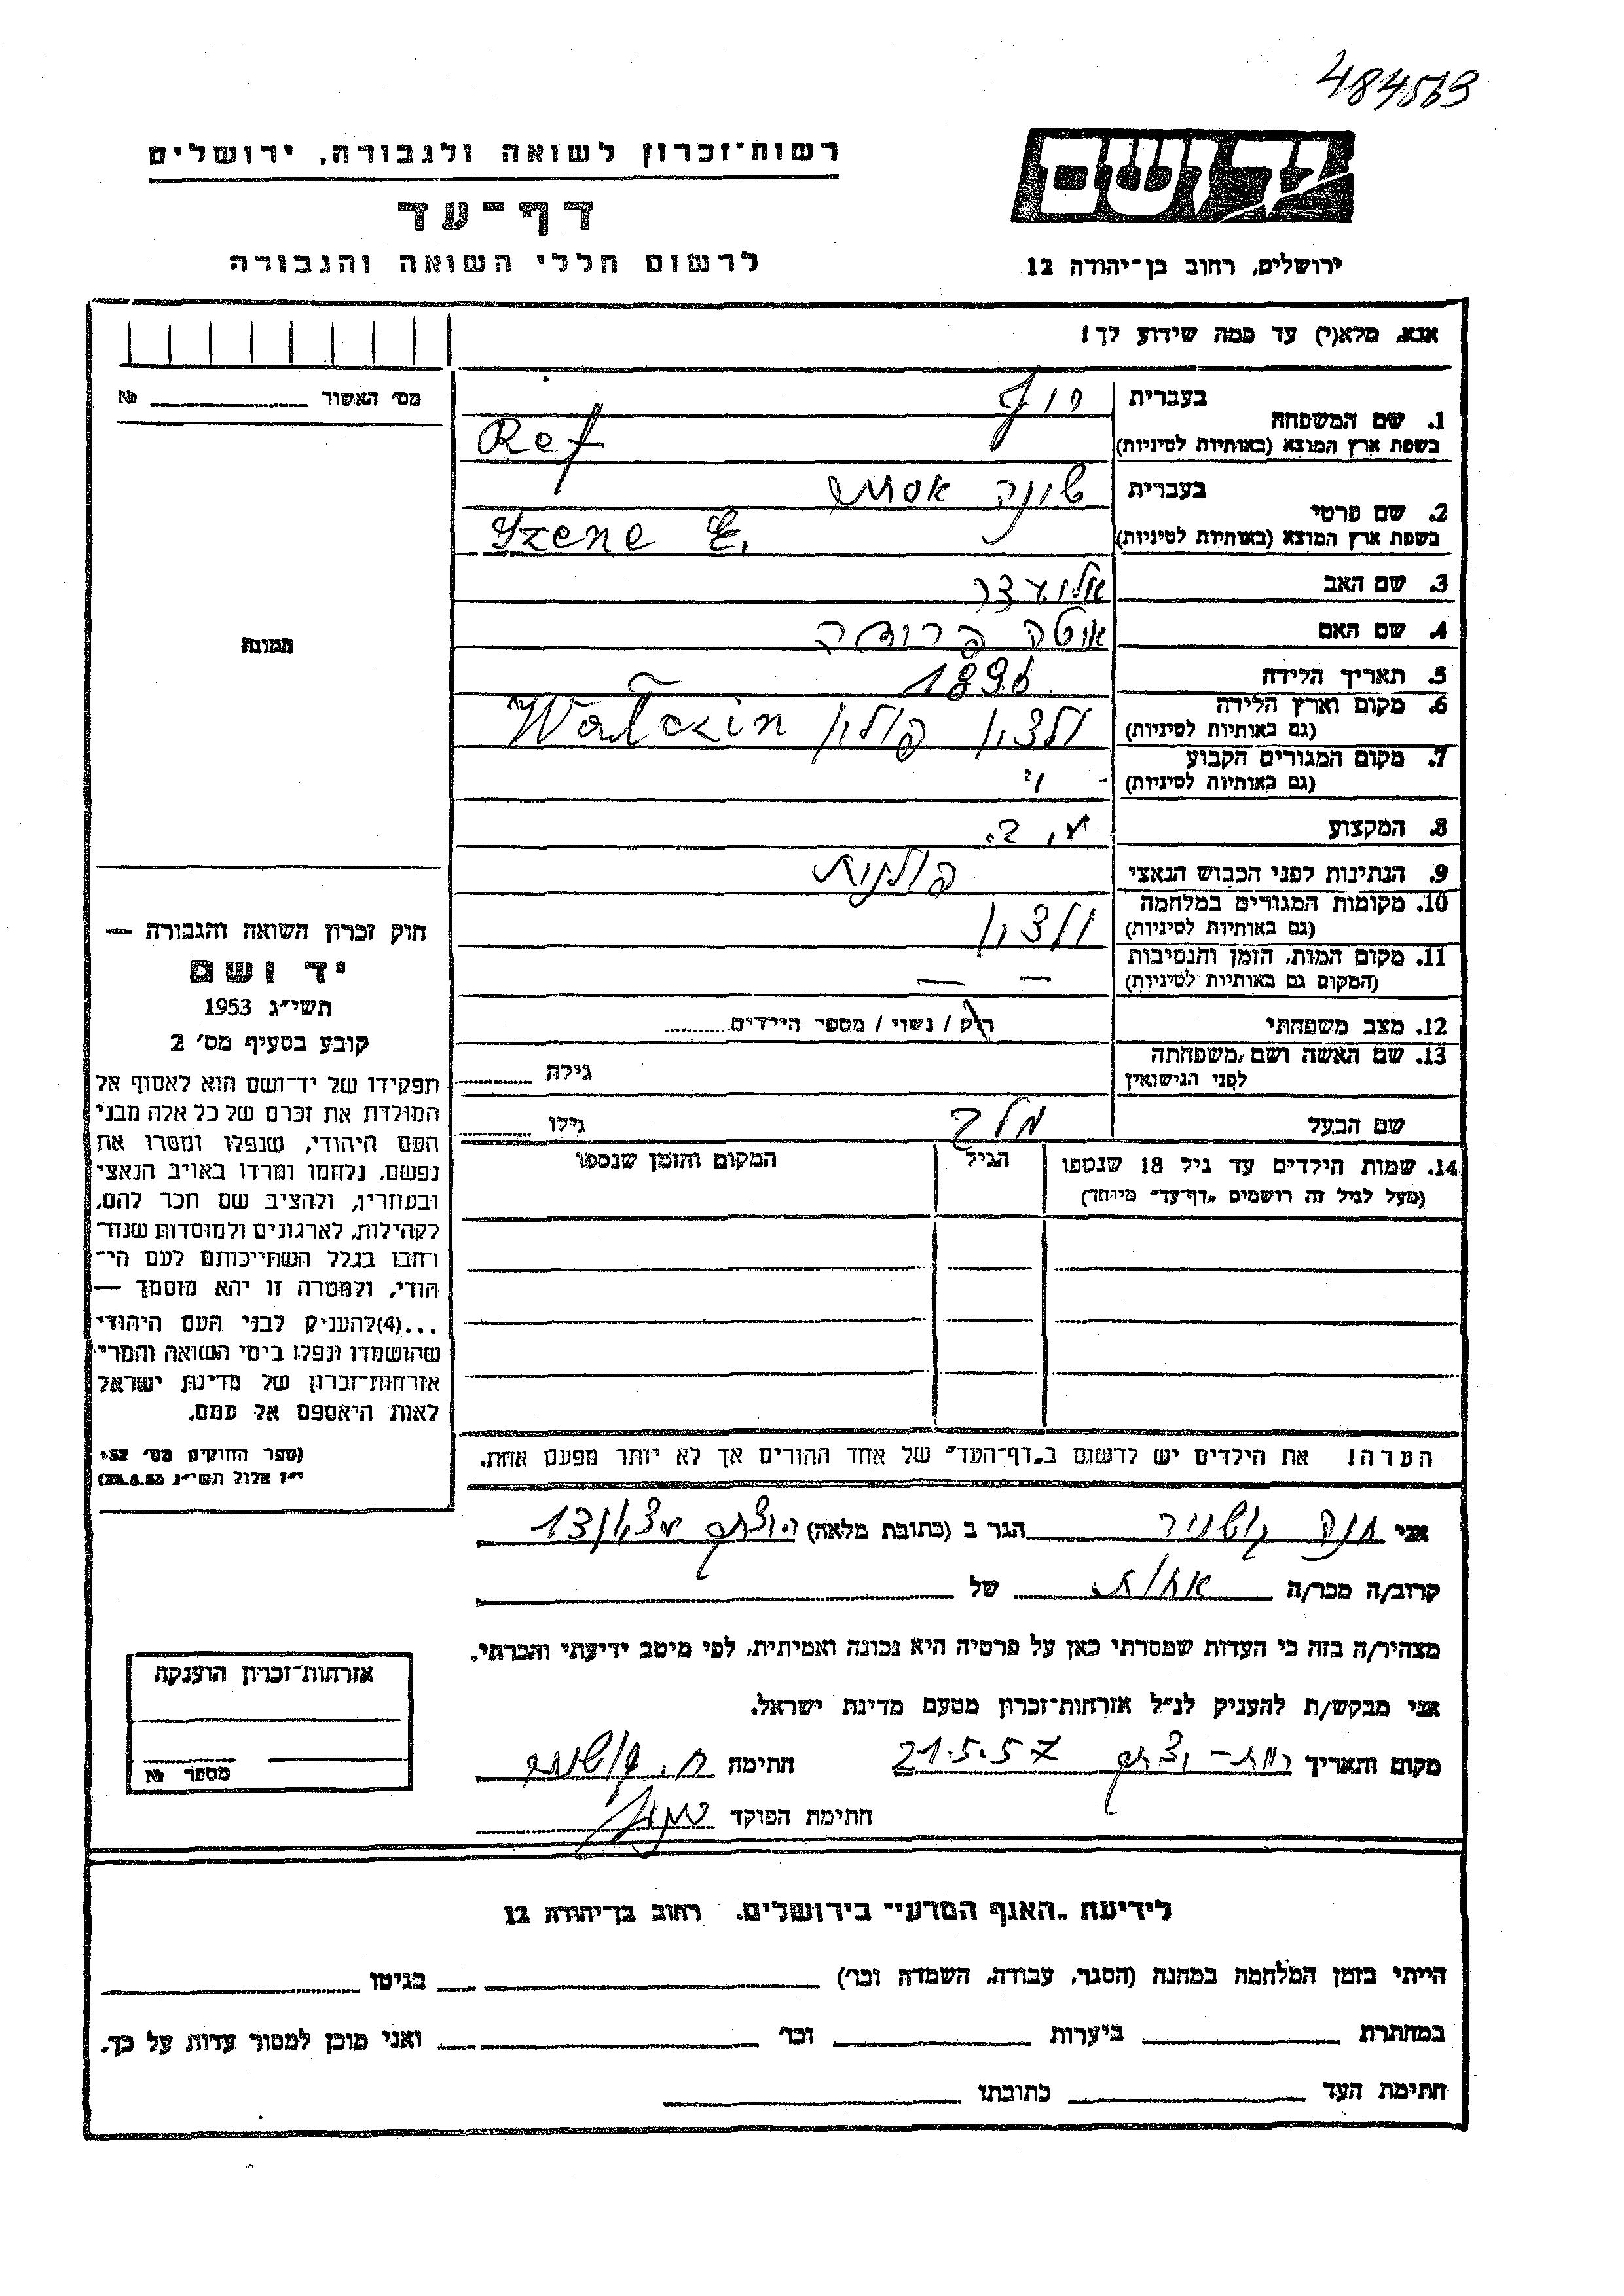 484563
רשות־זכרון לשואה ולגבורה, ירושלים
דף־עד
לרשום חללי השואה והגבורה
יד ושם
ירושלים, רחוב בן־יהודה 12
אנא, מלא(י) עד כמה שידוע לך!
מס׳ האשור № 
1. שם המשפחה
בעברית
בשפת ארץ המוצא (באותיות לטיניות)
Ref
2. שם פרטי
בעברית
בשפת ארץ המוצא (באותיות לטיניות)
Yzene E.
3. שם האב
4. שם האם
5. תאריך הלידה 1896
6. מקום וארץ הלידה
(גם באותיות לטיניות)
פולין
7. מקום המגורים הקבוע
(גם באותיות לטיניות)
8. המקצוע
ע. ב.
9. הנתינות לפני הכבוש הנאצי
פולנית
10. מקומות המגורים במלחמה
(גם באותיות לטיניות)
11. מקום המות, הזמן והנסיבות
(המקום גם באותיות לטיניות)
— —
12. מצב משפחתי
רוק / נשוי / מספר הילדים
13. שם האשה ושם משפחתה
לפני הנישואין
גילה
שם הבעל
גילו
14. שמות הילדים עד גיל 18 שנספו
(מעל לגיל זה רושמים „דף־עד״ מיוחד)
הגיל
המקום והזמן שנספו
הערה! את הילדים יש לרשום ב„דף־העד״ של אחד ההורים אך לא יותר מפעם אחת.
תמונה
חוק זכרון השואה והגבורה —
יד ושם
תשי״ג 1953
קובע בסעיף מס׳ 2
תפקידו של יד־ושם הוא לאסוף אל
המולדת את זכרם של כל אלה מבני
העם היהודי, שנפלו ומסרו את
נפשם, נלחמו ומרדו באויב הנאצי
ובעוזריו, ולהציב שם וזכר להם,
לקהילות, לארגונים ולמוסדות שנח־
רחבו בגלל השתייכותם לעם הי־
הודי, ולמטרה זו יהא מוסמך —
...(4)להעניק לבני העם היהודי
שהושמדו ונפלו בימי השואה והמרי
אזרחות־זכרון של מדינת ישראל
לאות היאספם אל עמם.
(ספר החוקים מס׳ 132
י״ז אלול תשי״ג 28.8.53)
אני חנה
הגר ב (כתובת מלאה)
13
קרוב/ה מכר/ה אחות של
מצהיר/ה בזה כי העדות שמסרתי כאן על פרטיה היא נכונה ואמיתית, לפי מיטב ידיעתי והכרתי.
אני מבקש/ת להעניק לנ״ל אזרחות־זכרון מטעם מדינת ישראל.
מקום ותאריך
21.5.57
חתימה
חתימת הפוקד
אזרחות־זכרון הוענקה
מספר №
לידיעת „האגף המדעי״ בירושלים. רחוב בן־יהודה 12
הייתי בזמן המלחמה במחנה (הסגר, עבודה, השמדה וכו׳) בגיטו
במחתרת ביערות וכו׳ ואני מוכן למסור עדות על כך.
חתימת העד כתובתו